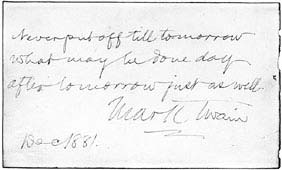 Never put off till tomorrow
what may be done day
after tomorrow just as well.
Mark Twain
Dec 1881.